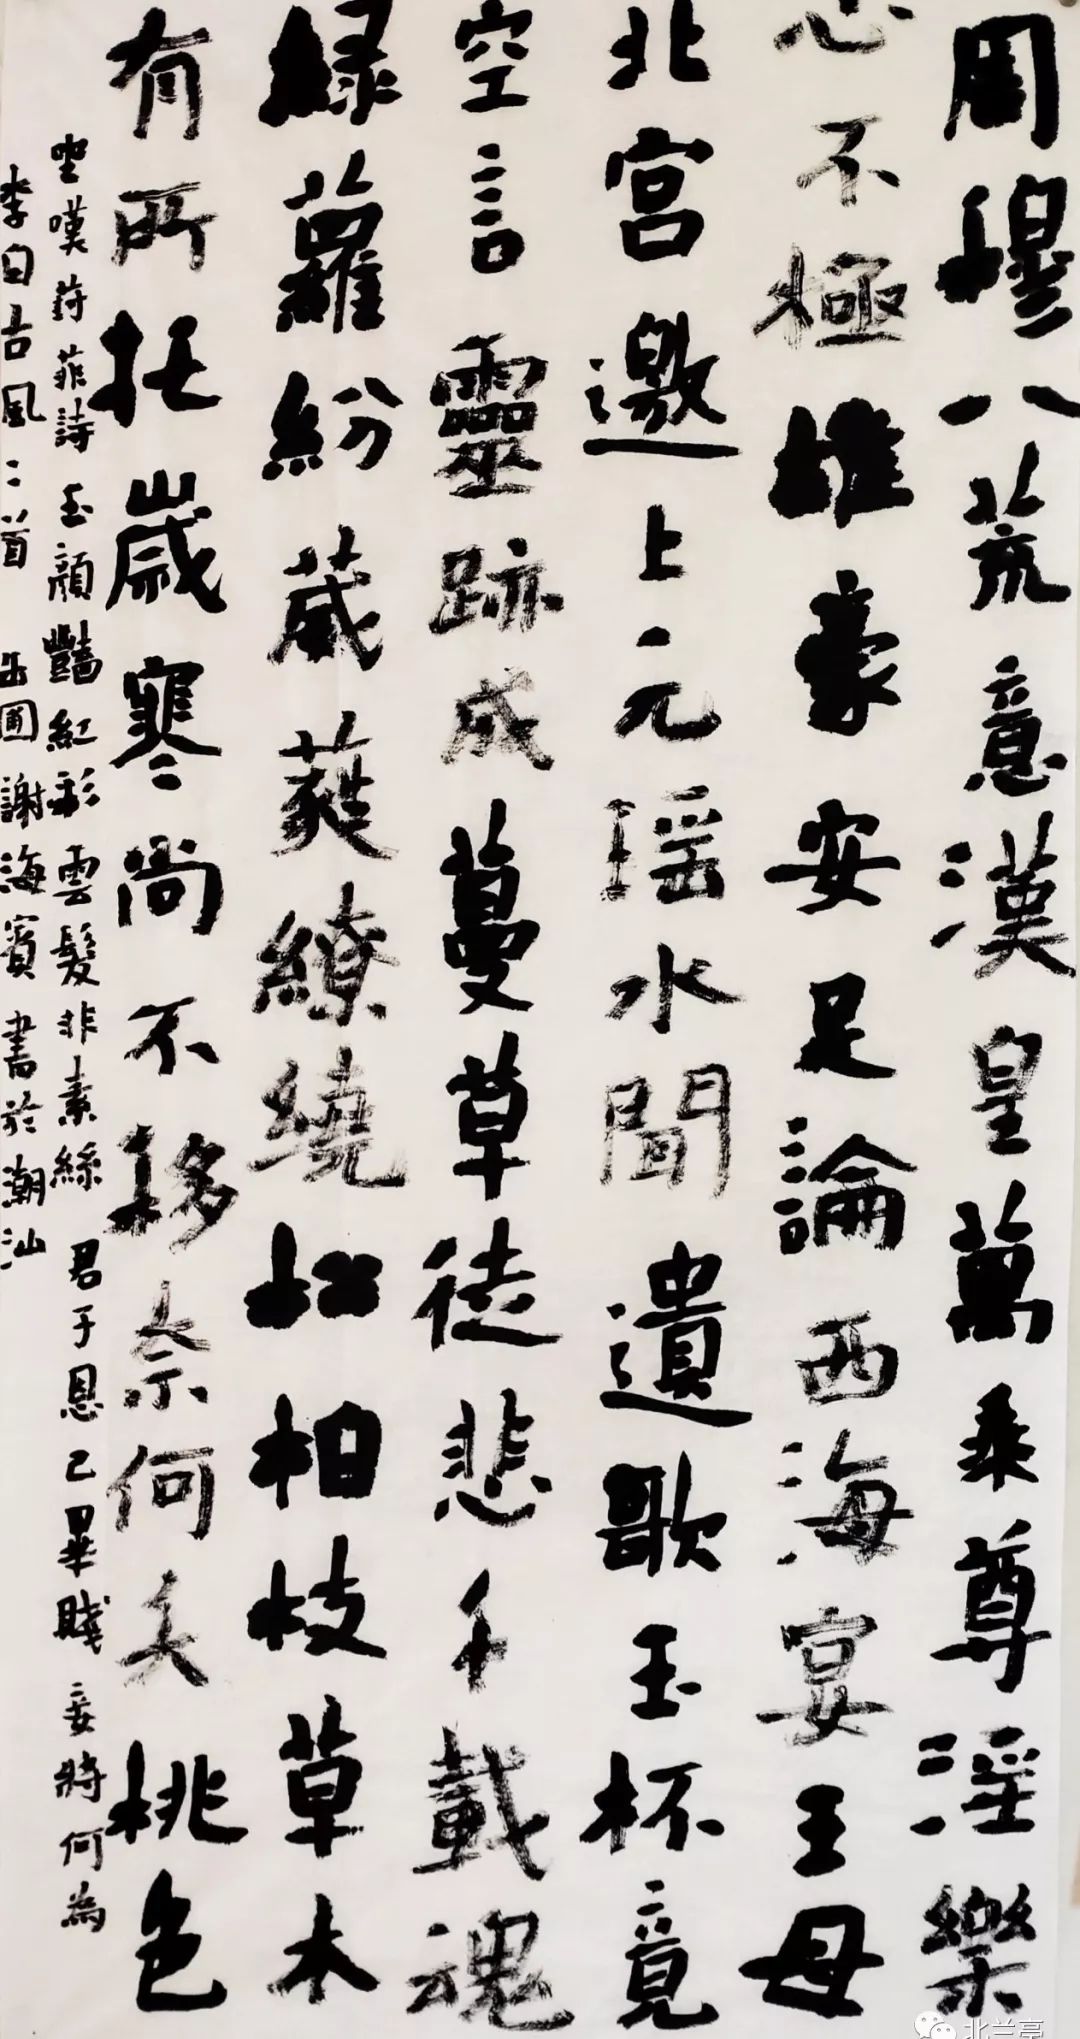 周穆八荒意漢皇萬乘尊淫樂
心不極雄豪安足論西海宴王母
北宮邀上元瑶水聞遺歌玉杯竟
空言靈跡成蔓草徒悲千載魂
緑蘿紛葳蕤繚繞松柏枝草木
有所托歲寒尚不移奈何夭桃色
坐嘆葑菲詩玉顔豔紅彩雲髮非素絲君子恩已畢賤妾將何為
李白古風二首 玉圃謝海賓書於潮汕
北兰亭